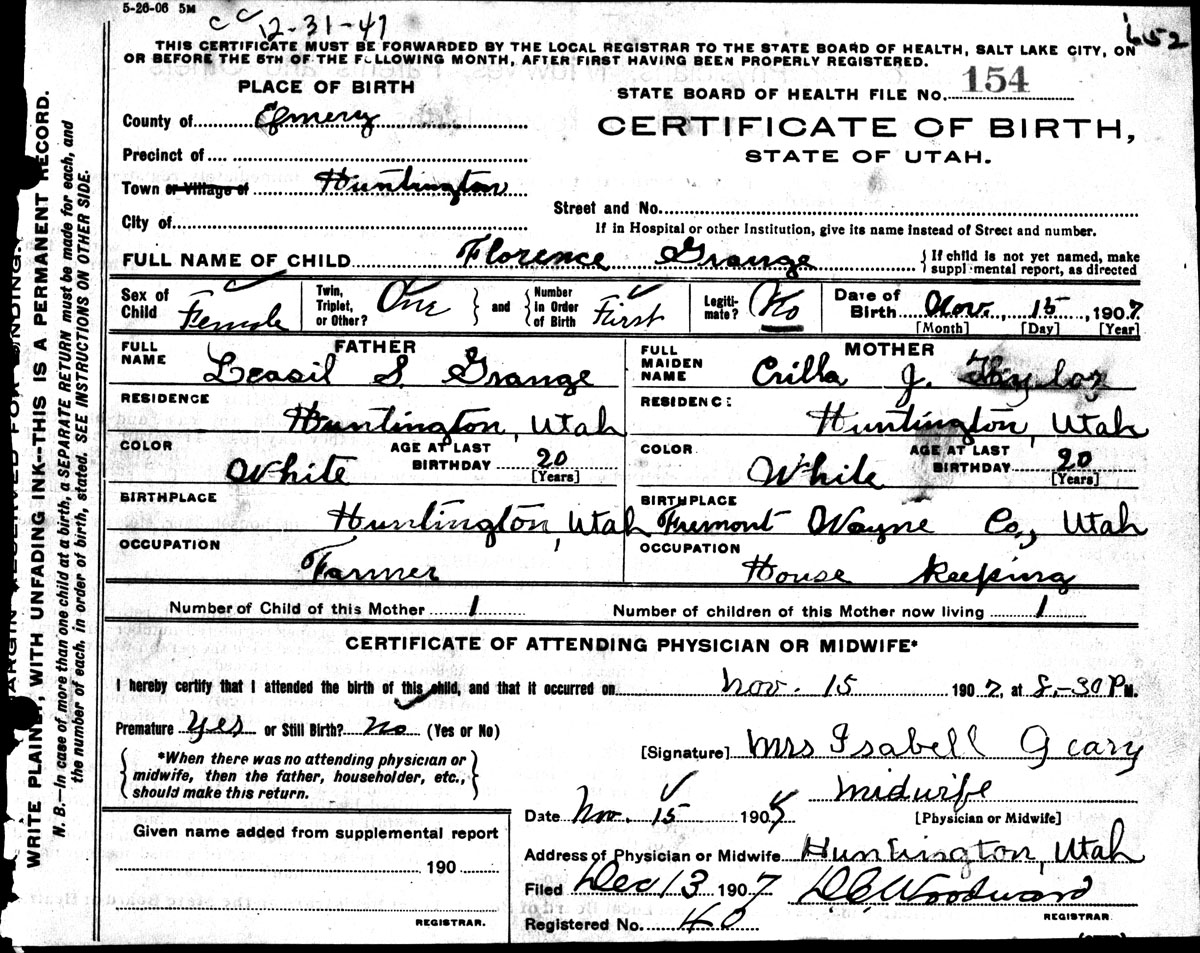 5-26-06 5M
c c 12-31-47
652
THIS CERTIFICATE MUST BE FORWARDED BY THE LOCAL REGISTRAR TO THE STATE BOARD OF HEALTH, SALT LAKE CITY, ON
OR BEFORE THE 5TH OF THE FOLLOWING MONTH, AFTER FIRST HAVING BEEN PROPERLY REGISTERED.
PLACE OF BIRTH
STATE BOARD OF HEALTH FILE No. 154
County of Emery
CERTIFICATE OF BIRTH,
STATE OF UTAH.
Precinct of
Town or Village of Huntington
Street and No.
City of
If in Hospital or other Institution, give its name instead of Street and number.
FULL NAME OF CHILD Florence Grange
{ If child is not yet named, make
supplemental report, as directed
Sex of Child Female
Twin, Triplet, or Other? One } and { Number In Order of Birth First
Legitimate? No
Date of Birth Nov. 15, 1907
[Month] [Day] [Year]
FATHER
FULL NAME Leasil S. Grange
RESIDENCE Huntington, Utah
COLOR White AGE AT LAST BIRTHDAY 20 [Years]
BIRTHPLACE Huntington, Utah
OCCUPATION Farmer
MOTHER
FULL MAIDEN NAME Crilla J. Taylor
RESIDENCE Huntington, Utah
COLOR White AGE AT LAST BIRTHDAY 20 [Years]
BIRTHPLACE Fremont Wayne Co., Utah
OCCUPATION House Keeping
Number of Child of this Mother 1 Number of children of this Mother now living 1
CERTIFICATE OF ATTENDING PHYSICIAN OR MIDWIFE*
I hereby certify that I attended the birth of this child, and that it occurred on Nov. 15 1907, at 8-30 P M.
Premature Yes or Still Birth? No (Yes or No)
{ *When there was no attending physician or
midwife, then the father, householder, etc.,
should make this return. }
[Signature] Mrs Isabell Geary
Midwife
[Physician or Midwife]
Date Nov. 15 190
Given name added from supplemental report
190
REGISTRAR.
Address of Physician or Midwife Huntington, Utah
Filed Dec 13 1907 D.C. Woodward
REGISTRAR
Registered No. 40
ARGIN RESERVED FOR BINDING.
WRITE PLAINLY, WITH UNFADING INK--THIS IS A PERMANENT RECORD.
N. B.—In case of more than one child at a birth, a SEPARATE RETURN must be made for each, and
the number of each, in order of birth, stated. SEE INSTRUCTIONS ON OTHER SIDE.